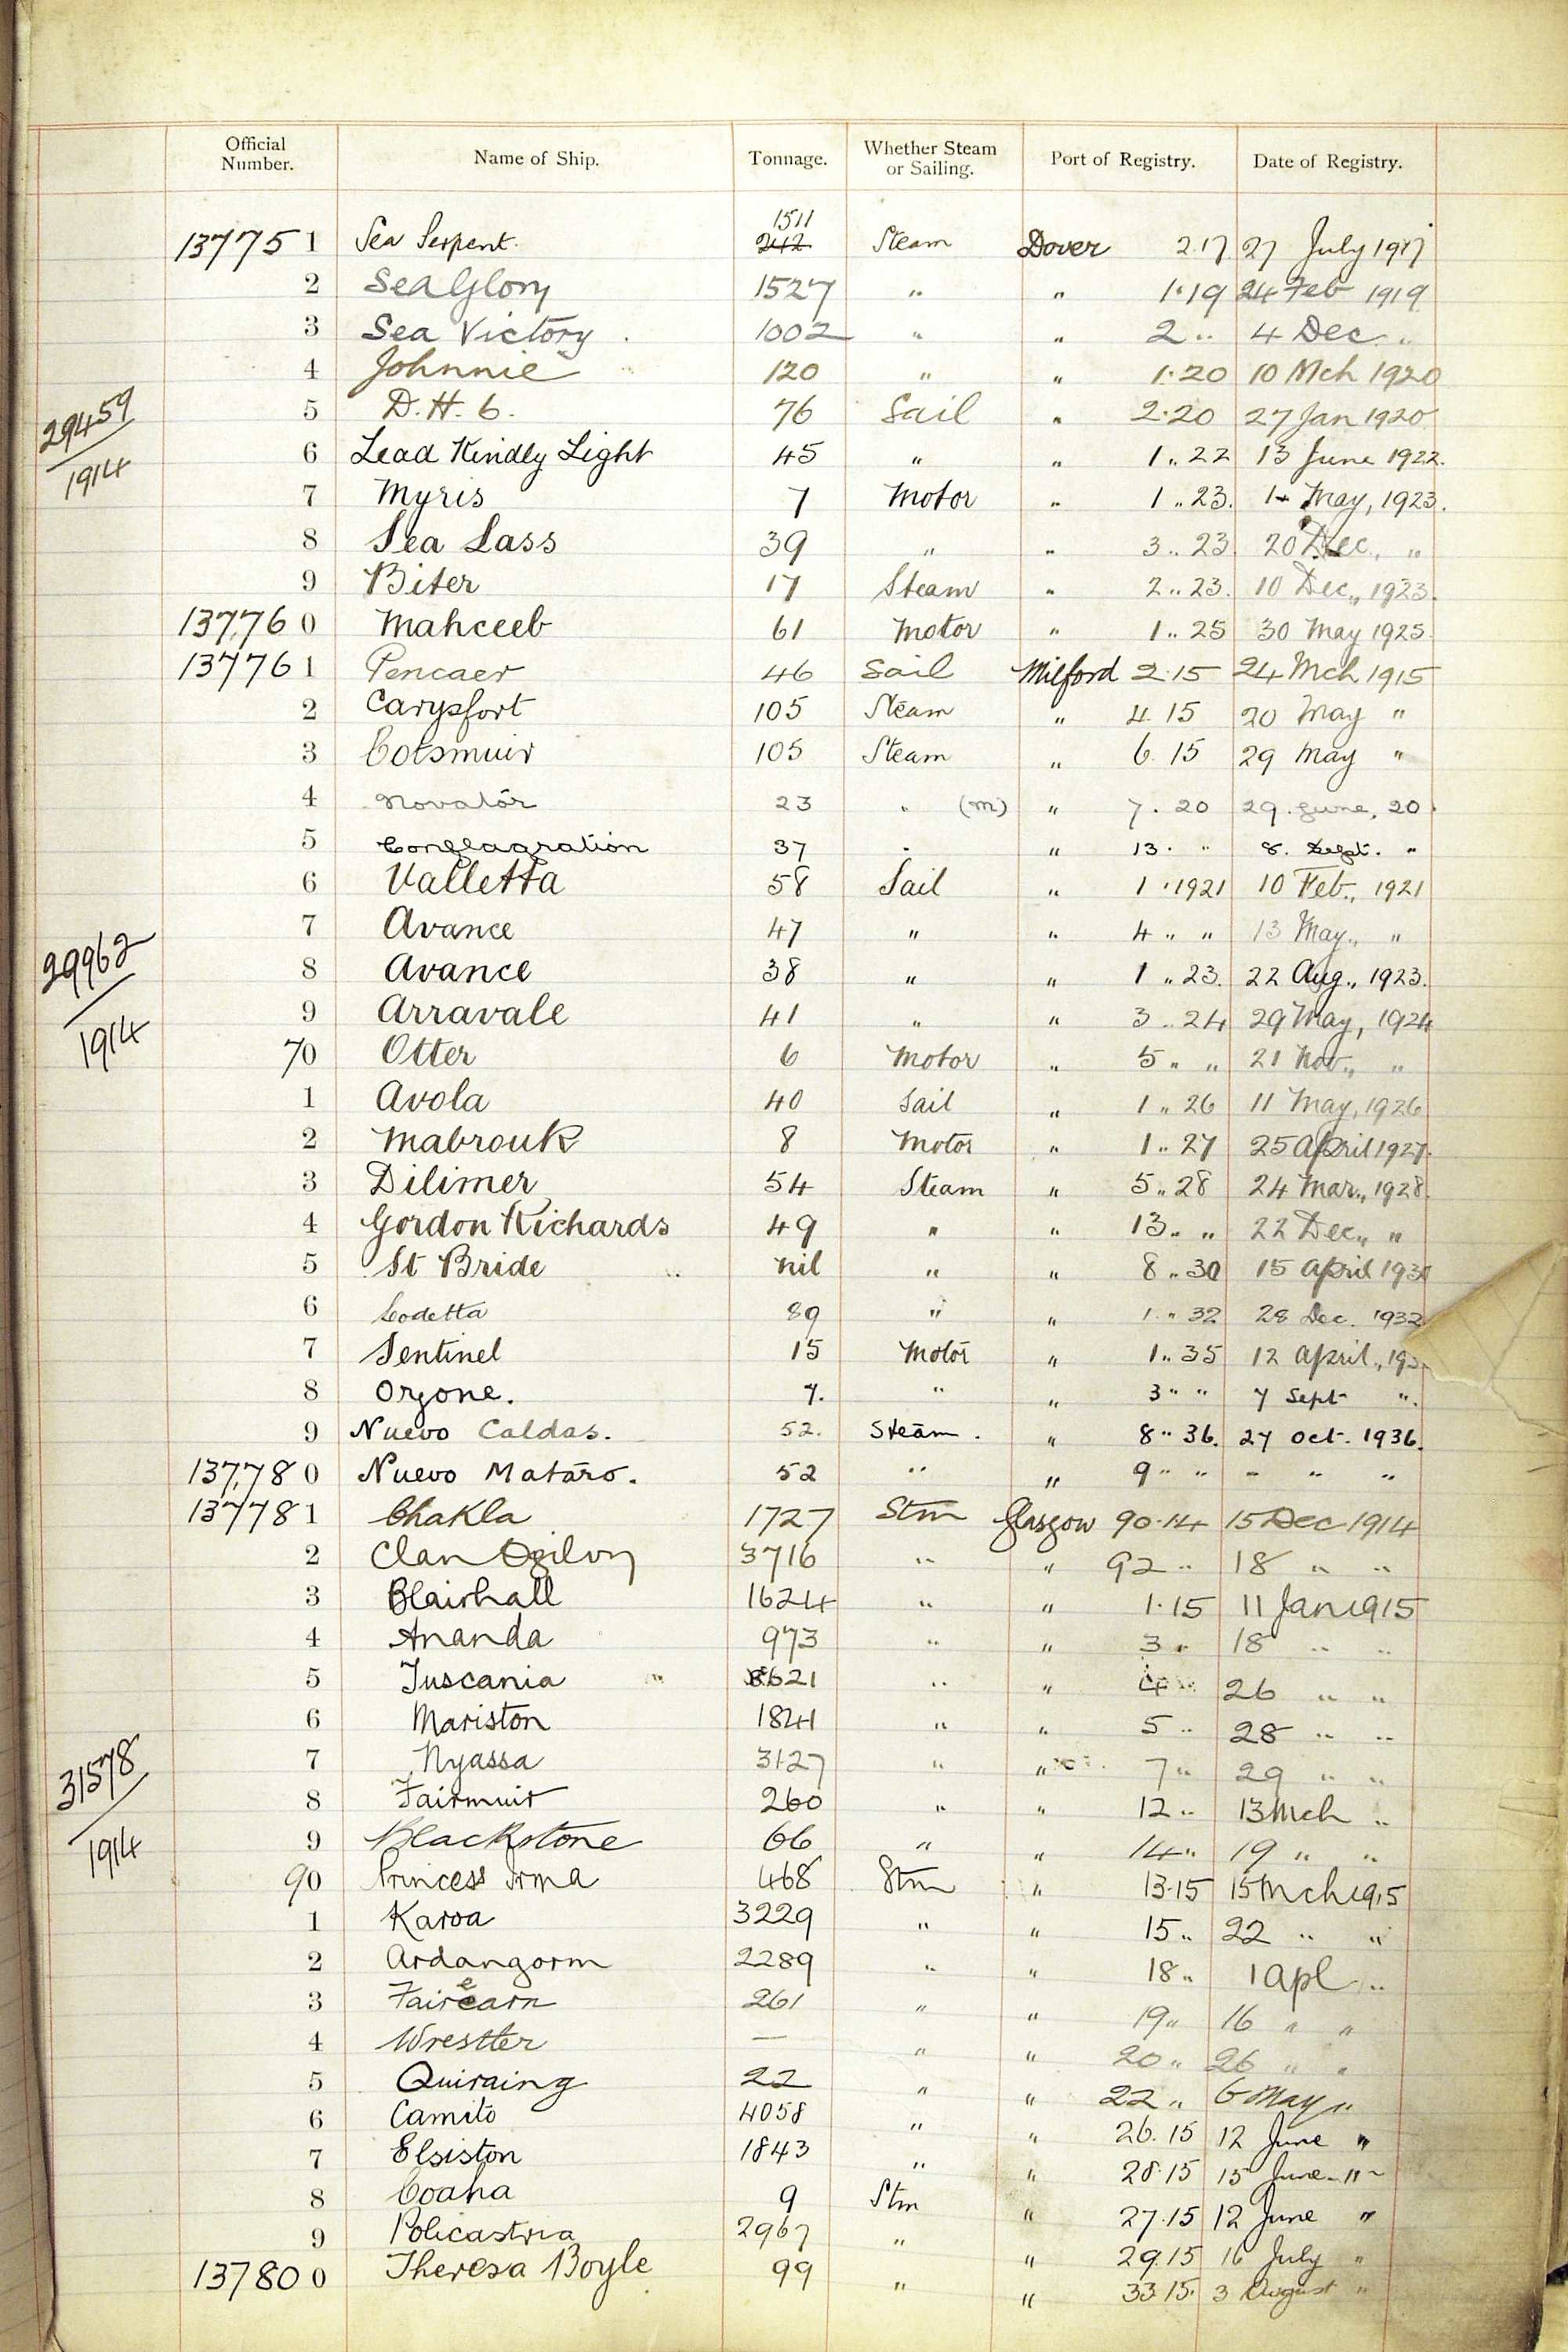 Official Number. Name of Ship. Tonnage. Whether Steam or Sailing. Port of Registry. Date of Registry.
1511
137751 Sea Serpent. 242 Steam Dover 2.17 27 July 1917
2 Sea Glory 1527 " " 1.19 24 Feb 1919
3 Sea Victory 1002 " " 2 " 4 Dec. "
4 Johnnie 120 " " 1.20 10 Mch 1920
29459
5 D.H. 6. 76 Sail " 2.20 27 Jan 1920
6 Lead Kindly Light 45 " " 1 " 22 13 June 1922.
1914
7 Myris 7 Motor " 1 " 23. 1 May, 1923.
8 Sea Lass 39 " " 3 " 23 20 Dec., "
9 Biter 17 Steam " 2 " 23. 10 Dec., 1923.
137760 Mahceeb 61 Motor " 1 " 25 30 May 1925.
137761 Pencaer 46 Sail Milford 2.15 24 Mch 1915
2 Carysfort 105 Steam " 4.15 20 May "
3 Cotsmuir 105 Steam " 6.15 29 May "
4 Novator 23 " (M) " 7.20 29. June, 20.
5 Conflagration 37 " " 13. " 8. Sept. "
6 Valletta 58 Sail " 1 " 1921 10 Feb., 1921
7 Avance 47 " " 4 " " 13 May., "
29962
8 Avance 38 " " 1 " 23. 22 Aug., 1923.
9 Arravale 41 " " 3 " 24 29 May, 1924
1914
70 Otter 6 Motor " 5 " " 21 Nov., "
1 Avola 40 Sail " 1 " 26 11 May, 1926
2 Mabrouk 8 Motor " 1 " 27 25 April 1927.
3 Dilimer 54 Steam " 5 " 28 24 Mar., 1928.
4 Gordon Richards 49 " " 13 " " 22 Dec., "
5 St Bride nil " " 8 " 30 15 April 1930
6 Codetta 89 " " 1 " 32 28 Dec. 1932
7 Sentinel 15 Motor " 1 " 35 12 April., 193
8 Orzone. 7. " " 3 " " 7 Sept ".
9 Nuevo Caldas. 52. Steam. " 8 " 36. 27 Oct. 1936.
137,780 Nuevo Mataro. 52 " " 9 " " " " "
137781 Chakla 1727 Stm Glasgow 90.14 15 Dec 1914
2 Clan Ogilvy 3716 " " 92 " 18 " "
3 Blairhall 1624 " " 1.15 11 Jan 1915
4 Ananda 973 " " 3 " 18 " "
5 Tuscania 8621 " " 4 " 26 " "
6 Mariston 1841 " " 5 " 28 " "
31578
7 Nyassa 3127 " " 7 " 29 " "
8 Fairmuir 260 " " 12 " 13 Mch "
1914
9 Blackstone 66 " " 14 " 19 " "
90 Princess Irma 468 Stm " 13.15 15 Mch 1915
1 Karoa 3229 " " 15 " 22 " "
2 Ardangorm 2289 " " 18 " 1 Apl "
3 Fairearn 261 " " 19 " 16 " "
4 Wrestler — " " 20 " 26 " "
5 Quiraing 22 " " 22 " 6 May "
6 Camito 4058 " " 26.15 12 June "
7 Elsiston 1843 " " 28.15 15 June "
8 Coaha 9 Stm " 27.15 12 June "
9 Policastra 2967 " " 29.15 16 July "
137800 Theresa Boyle 99 " " 33.15. 3 August "